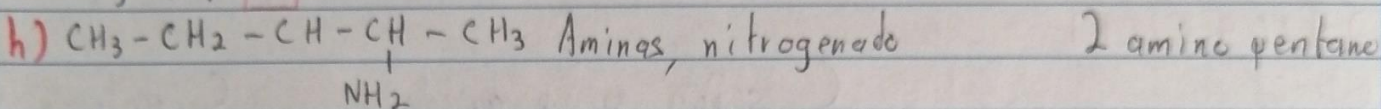 h) CH3 - CH2 - CH - CH - CH3 Aminas, nitrogenado 2 amino pentano
NH2